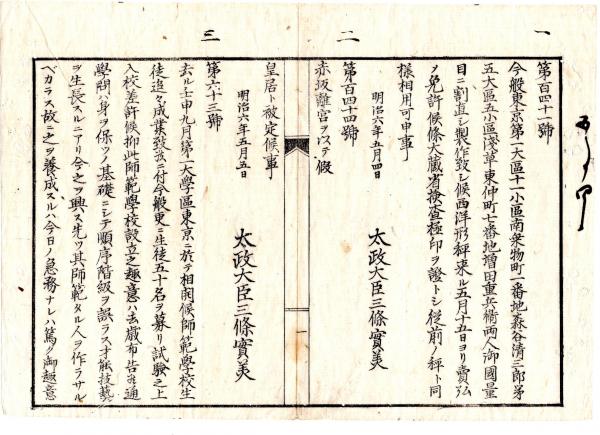 一
第百四十一號
今般東京第一大區十一小區南乗物町一番地森谷清三郎第
五大區五小區淺草東仲町七番地増田重兵衛両人御國量
目ニ割直シ製作致シ候西洋形秤来ル五月十五日ヨリ賣弘
ノ免許候條大藏省検査極印ヲ證トシ從前ノ秤ト同
様相用可申事
明治六年五月四日
太政大臣三條實美
二
第百四十四號
赤坂離宮ヲ以テ假
皇居ト被定候事
明治六年五月五日
太政大臣三條實美
三
第六十三號
去ル壬申九月第一大學區東京ニ於テ相開候師範學校生
徒追々成業致候ニ付今般更ニ生徒五十名ヲ募リ試験之上
入校差許候抑此師範學校設立之趣意ハ去歳布告候通
學問ハ身ヲ保ツノ基礎ニシテ順序階級ヲ誤ラス才能技藝
ヲ生長スルニアリ今之ヲ興ス先ツ其師範タル人ヲ作ラサル
ベカラス故ニ之ヲ養成スルハ今日ノ急務ナレハ篤ク御趣意